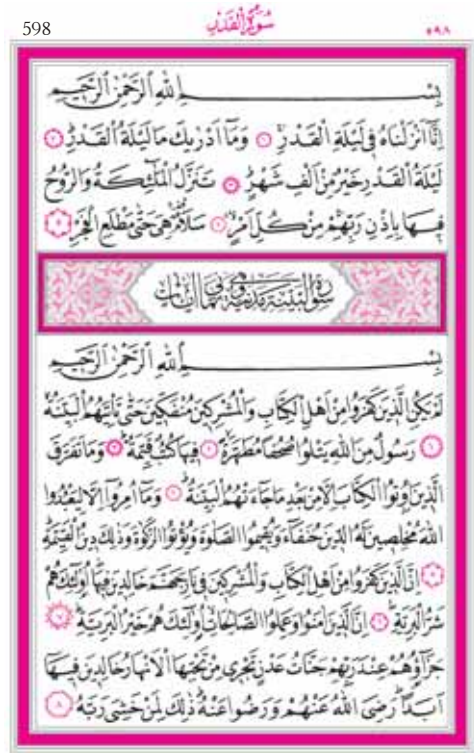 598 سُورَةُ الْقَدْرِ ٥٩٨
بِسْمِ اللّٰهِ الرَّحْمٰنِ الرَّحٖيمِ
اِنَّٓا اَنْزَلْنَاهُ فٖي لَيْلَةِ الْقَدْرِ ١ وَمَٓا اَدْرٰيكَ مَا لَيْلَةُ الْقَدْرِ ٢
لَيْلَةُ الْقَدْرِ خَيْرٌ مِنْ اَلْفِ شَهْرٍ ٣ تَنَزَّلُ الْمَلٰٓئِكَةُ وَالرُّوحُ
فٖيهَا بِاِذْنِ رَبِّهِمْ مِنْ كُلِّ اَمْرٍ ٤ سَلَامٌ هِيَ حَتّٰى مَطْلَعِ الْفَجْرِ ٥
سُورَةُ الْبَيِّنَةِ مَدَنِيَّةٌ وَهِيَ ثَمَانِي اٰيَاتٍ
بِسْمِ اللّٰهِ الرَّحْمٰنِ الرَّحٖيمِ
لَمْ يَكُنِ الَّذٖينَ كَفَرُوا مِنْ اَهْلِ الْكِتَابِ وَالْمُشْرِكٖينَ مُنْفَكّٖينَ حَتّٰى تَأْتِيَهُمُ الْبَيِّنَةُ
١ رَسُولٌ مِنَ اللّٰهِ يَتْلُوا صُحُفًا مُطَهَّرَةً ٢ فٖيهَا كُتُبٌ قَيِّمَةٌ ٣ وَمَا تَفَرَّقَ
الَّذٖينَ اُو۫تُوا الْكِتَابَ اِلَّا مِنْ بَعْدِ مَا جَٓاءَتْهُمُ الْبَيِّنَةُ ٤ وَمَٓا اُمِرُٓوا اِلَّا لِيَعْبُدُوا
اللّٰهَ مُخْلِصٖينَ لَهُ الدّٖينَ حُنَفَٓاءَ وَيُقٖيمُوا الصَّلٰوةَ وَيُؤْتُوا الزَّكٰوةَ وَذٰلِكَ دٖينُ الْقَيِّمَةِ
٥ اِنَّ الَّذٖينَ كَفَرُوا مِنْ اَهْلِ الْكِتَابِ وَالْمُشْرِكٖينَ فٖي نَارِ جَهَنَّمَ خَالِدٖينَ فٖيهَا اُو۬لٰٓئِكَ هُمْ
شَرُّ الْبَرِيَّةِ ٦ اِنَّ الَّذٖينَ اٰمَنُوا وَعَمِلُوا الصَّالِحَاتِ اُو۬لٰٓئِكَ هُمْ خَيْرُ الْبَرِيَّةِ ٧
جَزَٓاؤُ۬هُمْ عِنْدَ رَبِّهِمْ جَنَّاتُ عَدْنٍ تَجْرٖي مِنْ تَحْتِهَا الْاَنْهَارُ خَالِدٖينَ فٖيهَٓا
اَبَدًا رَضِيَ اللّٰهُ عَنْهُمْ وَرَضُوا عَنْهُ ذٰلِكَ لِمَنْ خَشِيَ رَبَّهُ ٨